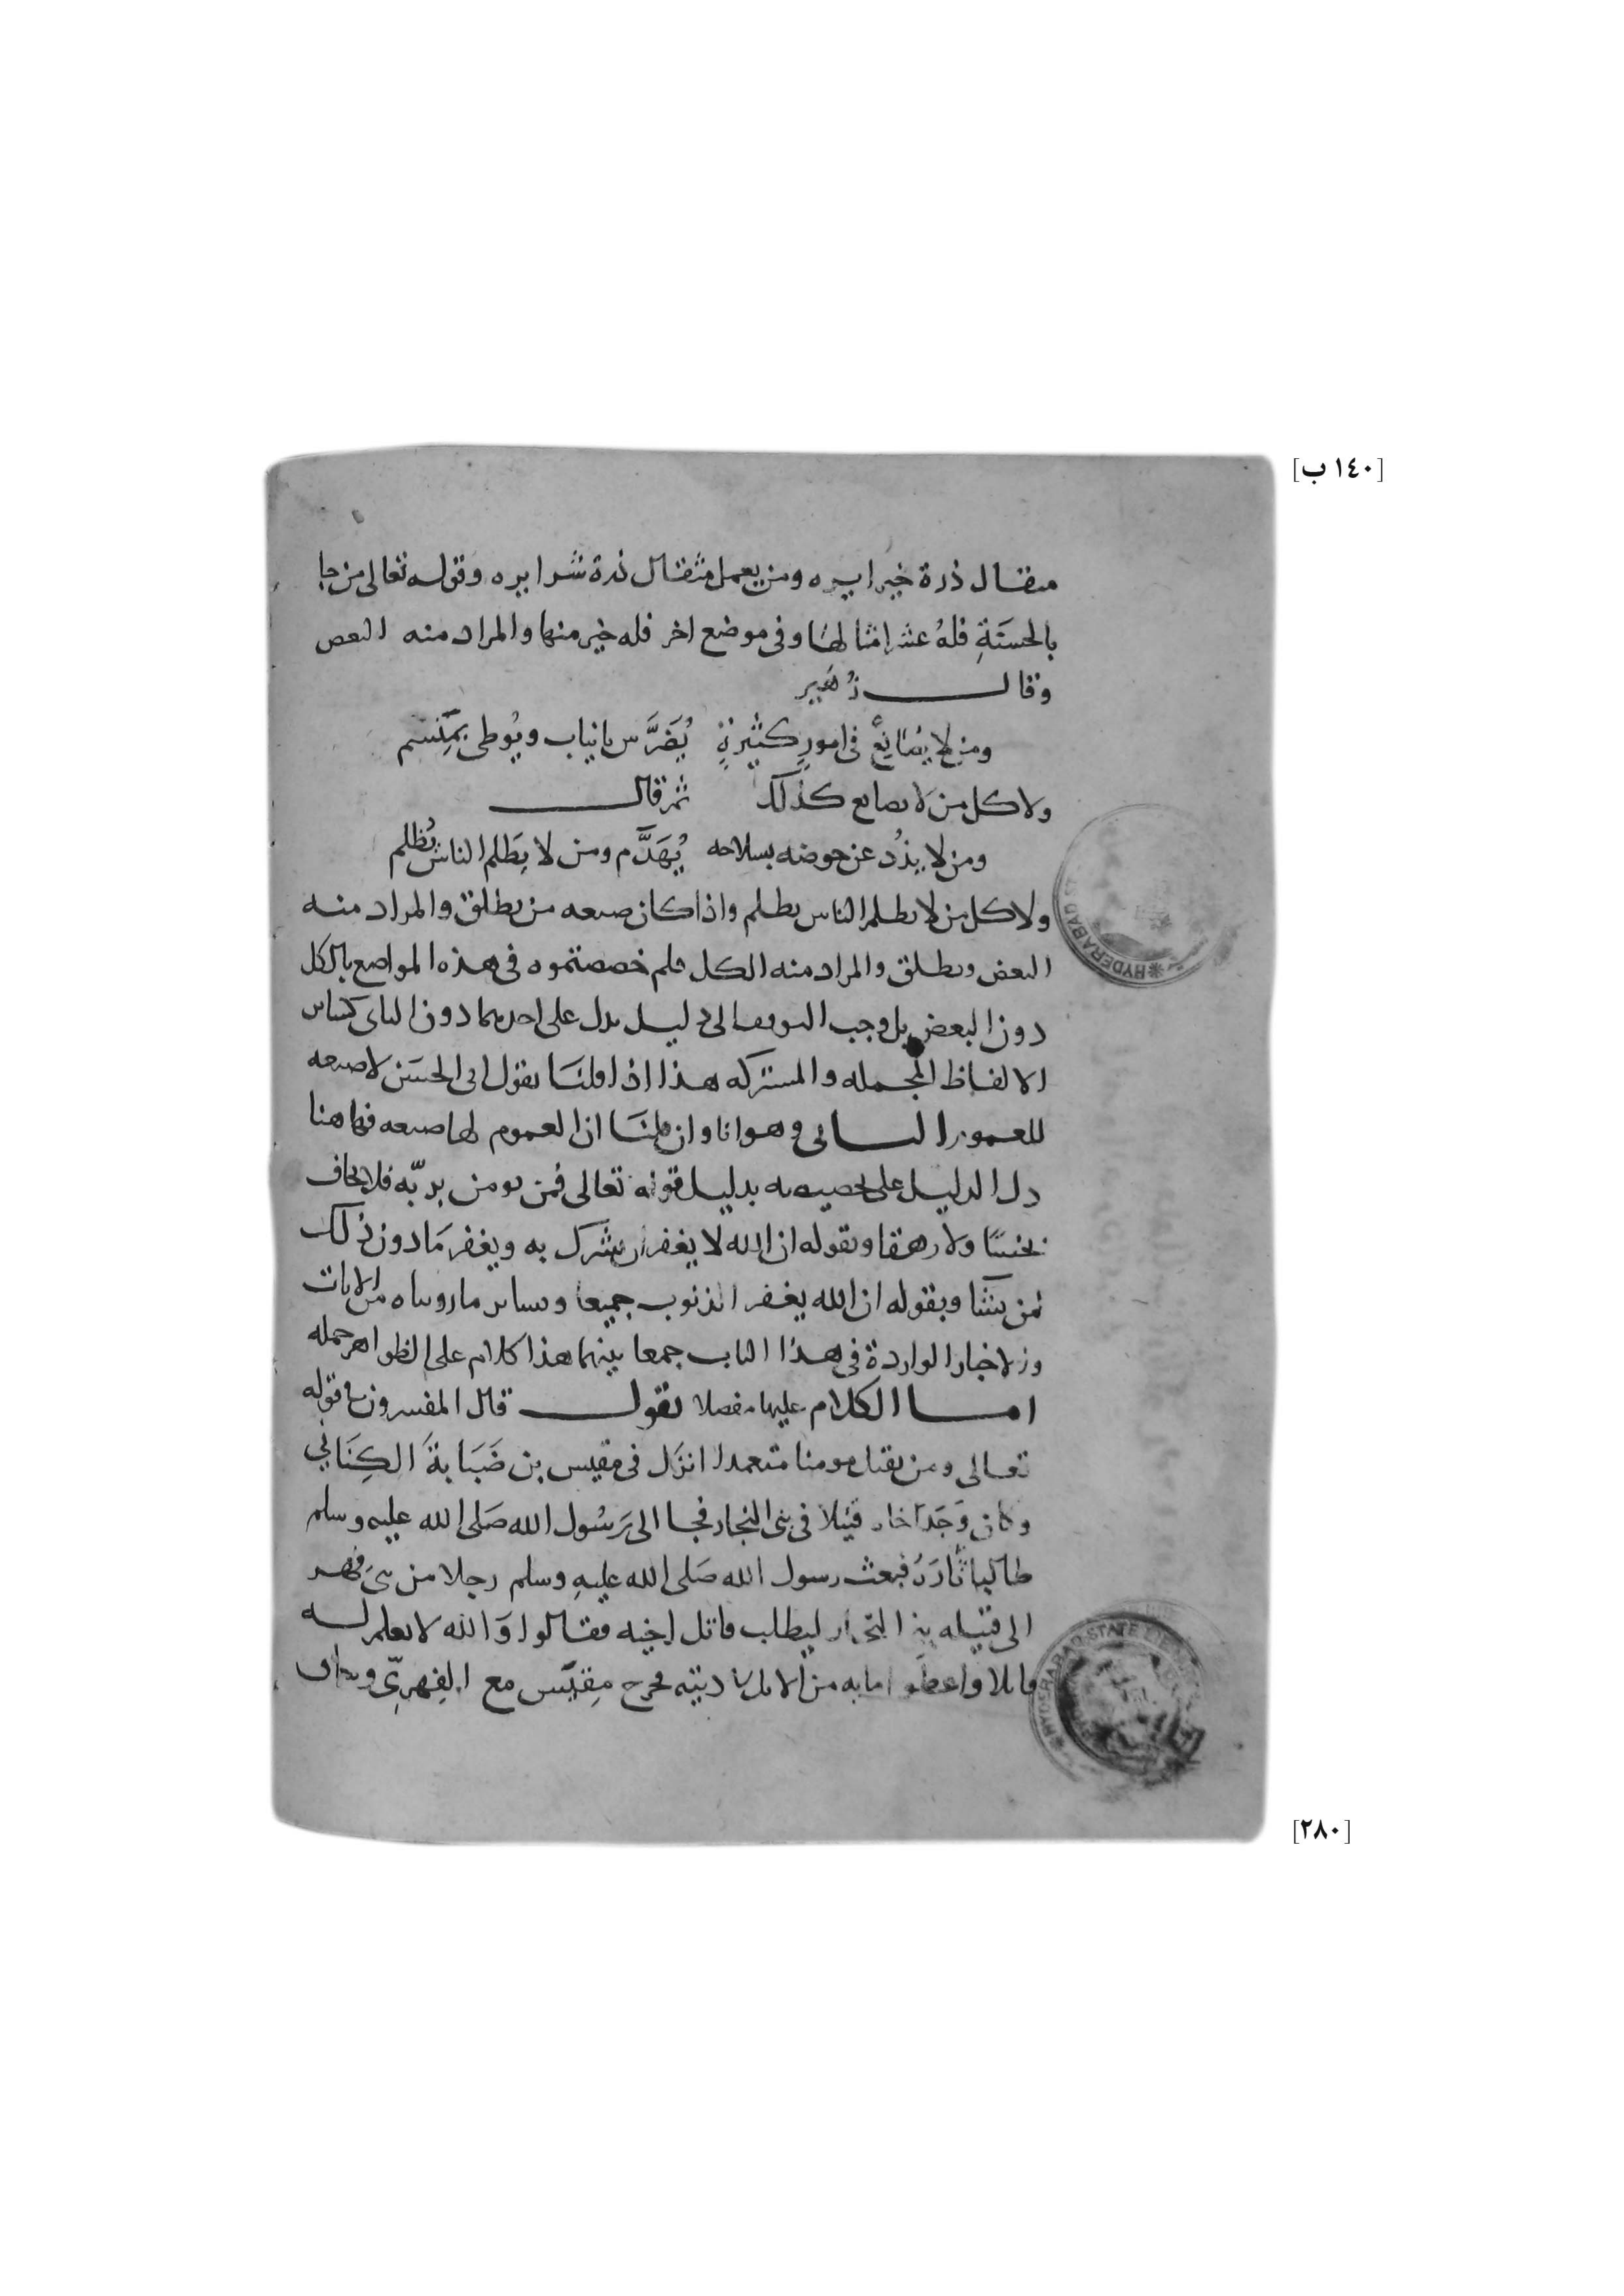 [١٤٠ ب]
مثقال ذرة خيرا يره ومن يعمل مثقال ذرة شرا يره وقوله تعالى من جا
بالحسنَةِ فلهُ عشر امثالهَا وفى موضع اخر فله خير منها والمراد منه البعض
وقال زُهَير
ومن لا يصَانِعْ فى امورٍ كثيرةٍ يُضَرَّس بانياب ويُوطى بمَنْسم
ولا كل من لا يصانع كذلك ثم قال
ومن لا يذُد عن حوضه بسلاحه يُهَدَّم ومن لا يَظلم الناسَ يُظلم
ولا كل من لا يظلم الناس يظلم واذا كان صيغه من يطلق والمراد منه
البعض ويطلق والمراد منه الكل فلم خصصتموه فى هذه المواضع بالكل
دون البعض بل وجب التوقف الى دليل يدل على احدهما دون الثانى كساير
الالفاظ المجمله والمشتركه هذا اذا قلنَا بقول ابى الحسَن لا صيغه
للعموم الثانى وهو انا وان قلنَا ان العموم لها صيغه فهاهنا
دل الدليل على تخصيصه بدليل قوله تعالى فمن يومن بربّه فلا يخاف
بخسًا ولا رهقا وبقوله ان الله لا يغفر ان يشرك به ويغفر مَا دون ذلك
لمن يشَا وبقوله ان الله يغفر الذنوب جميعا وساير ما رويناه من الايات
والاخبار الواردة فى هذا الباب جمعا بينهما هذا كلام على الظواهر جمله
امـا الكلام عليها مفصلا نقول قال المفسرون فى قوله
تعالى ومن يقتل مومنا متعمدا انزل فى مقيس بن ضَبَابةَ الكِنَاني
وكان وَجَدَ اخاه قتيلا فى بنى النجار فجا الى رَسُول الله صَلى الله عليه وسلم
طالبا ثأرَهُ فبعث رسول الله صَلى الله عليهِ وسلم رجلا من بنى فهر
الى قبيله بنى النجار ليطلب قاتل اخيه فقالوا وَالله لا نعلم له
قاتلا واعطوا مايه من الابل ديته فخرج مِقيَس مع الفِهرِيّ
HYDERABAD ST
HYDERABAD STATE
[٢٨٠]